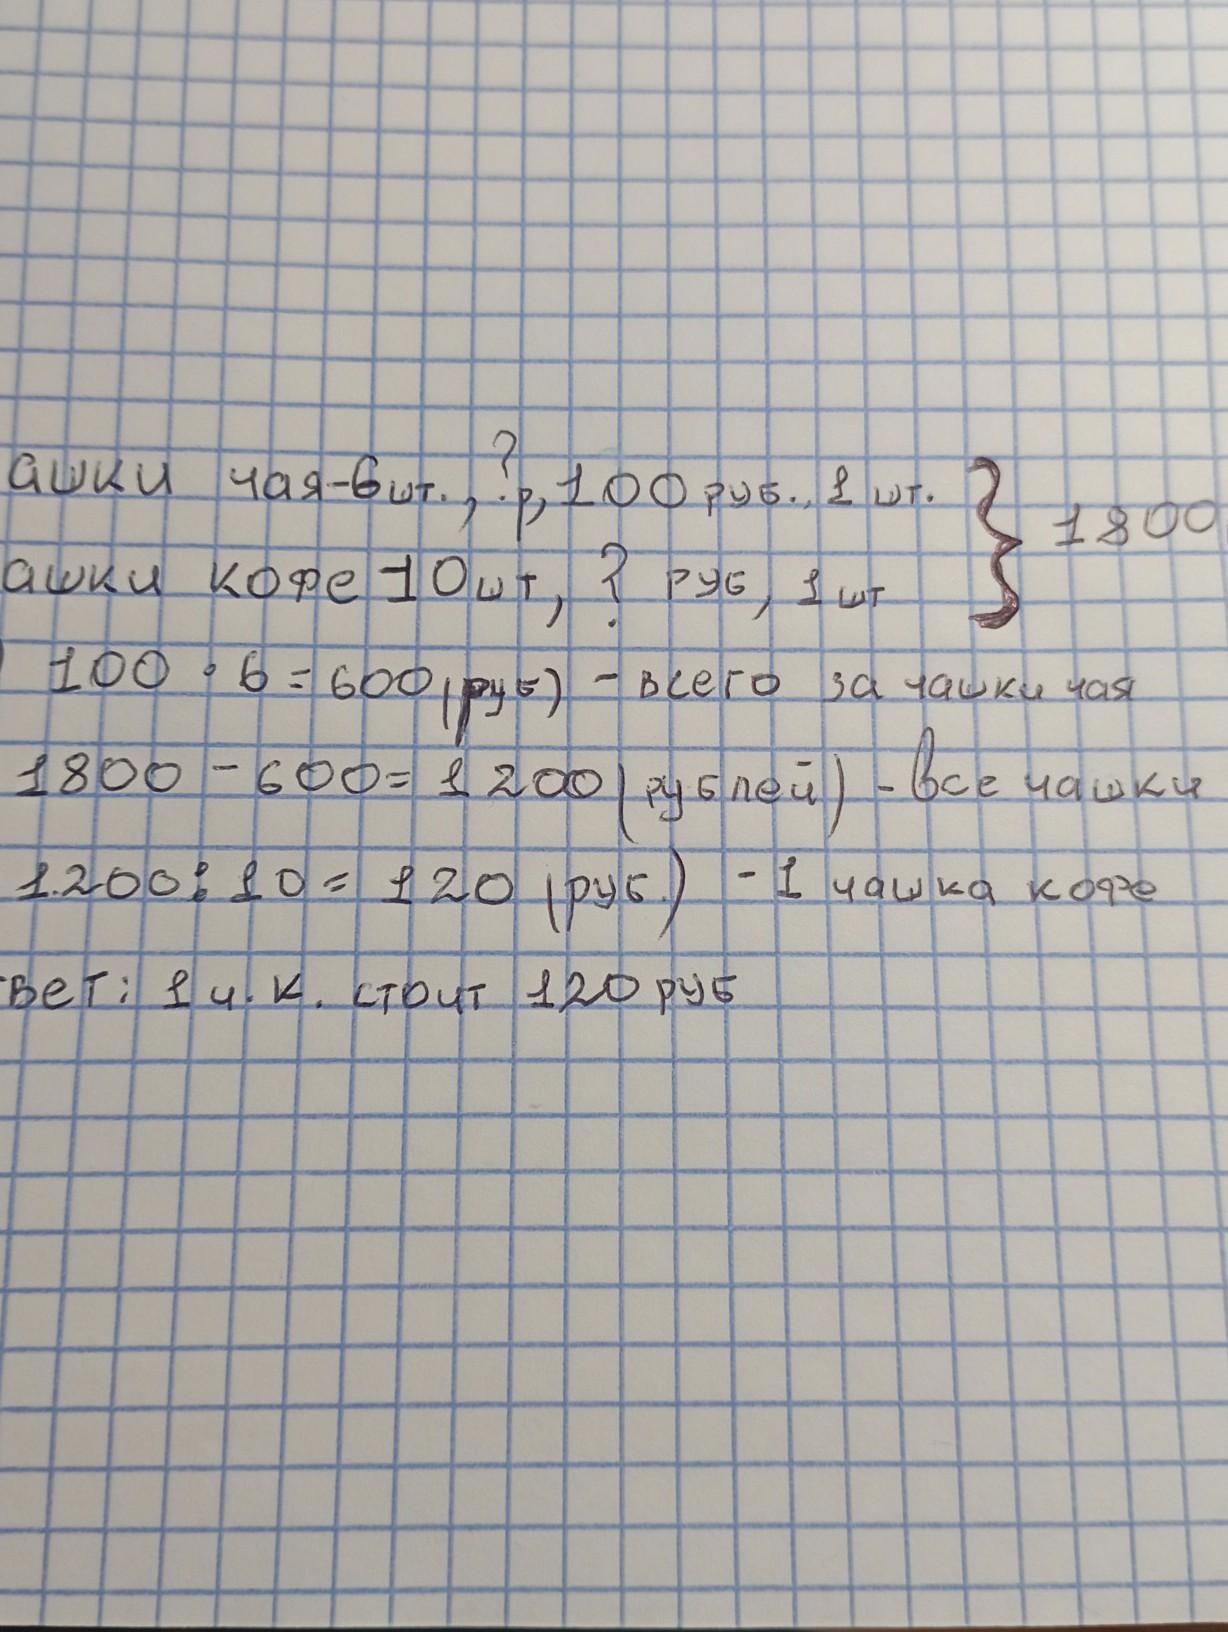 ашки чая-6шт., ?р, 100руб., 1 шт. } 1800
ашки кофе 10шт, ? руб, 1шт
) 100 · 6 = 600(руб) - всего за чашки чая
1800 - 600 = 1200(рублей) - все чашки
1200 : 10 = 120 (руб.) - 1 чашка кофе
твет: 1 ч. к. стоит 120 руб